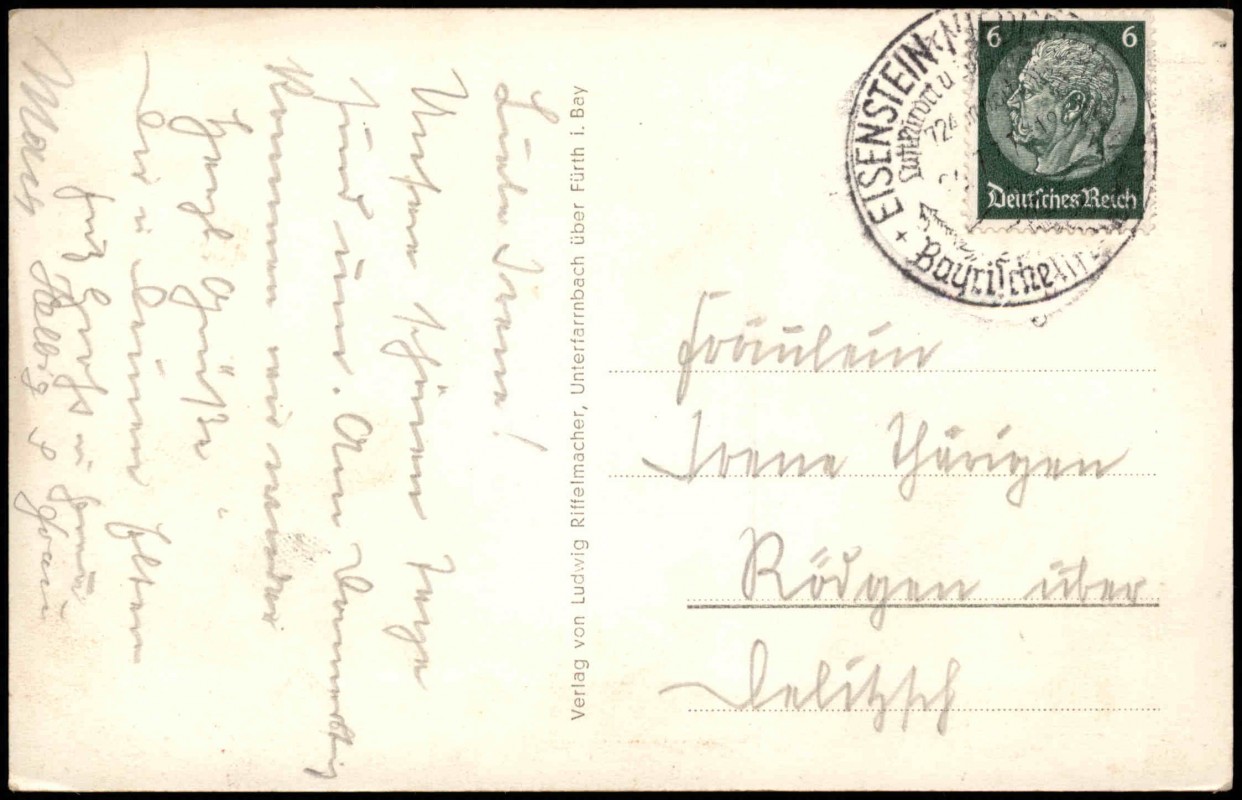 Liebe Irene!
Unsere schönen Tage
sind um. Am Donnerstag
kommen wir wieder
Herzl. Grüße
Dir u. Deinen Eltern
Fritz u. Frau
Helbig u. Frau
Verlag von Ludwig Riffelmacher, Unterfarrnbach über Fürth i. Bay
EISENSTEIN
Luftkurort u.
724
Bayrische
6 6
Deutsches Reich
Fräulein
Irene Thärigen
Rödgen über
Delitzsch